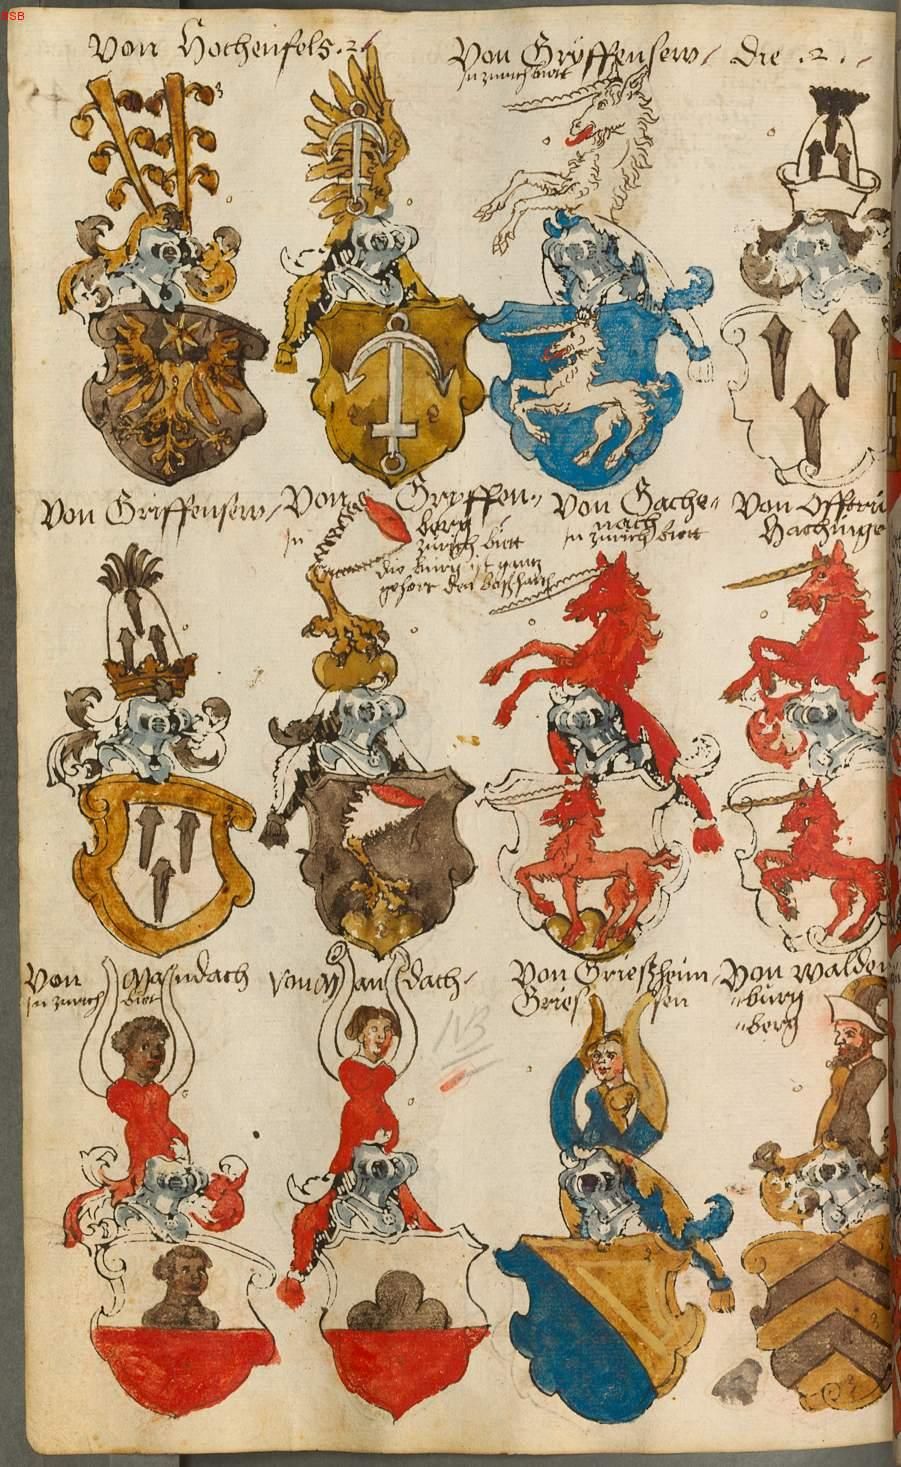 BSB
Von Hochenfels .2.
Von Gröffensew / Die .2.
jn zurich biet
Von Griffensew / Von Gryffen-
jn
berg
zürich biett
die burg ist gantz
gehört den
Von Gache-
nach
jn zurich biett
Von
Hachinge
Von Mandach
jn zurich biet
Von Mandach
Von Griessheim
Griessen
Von Walden
burg
berg
113